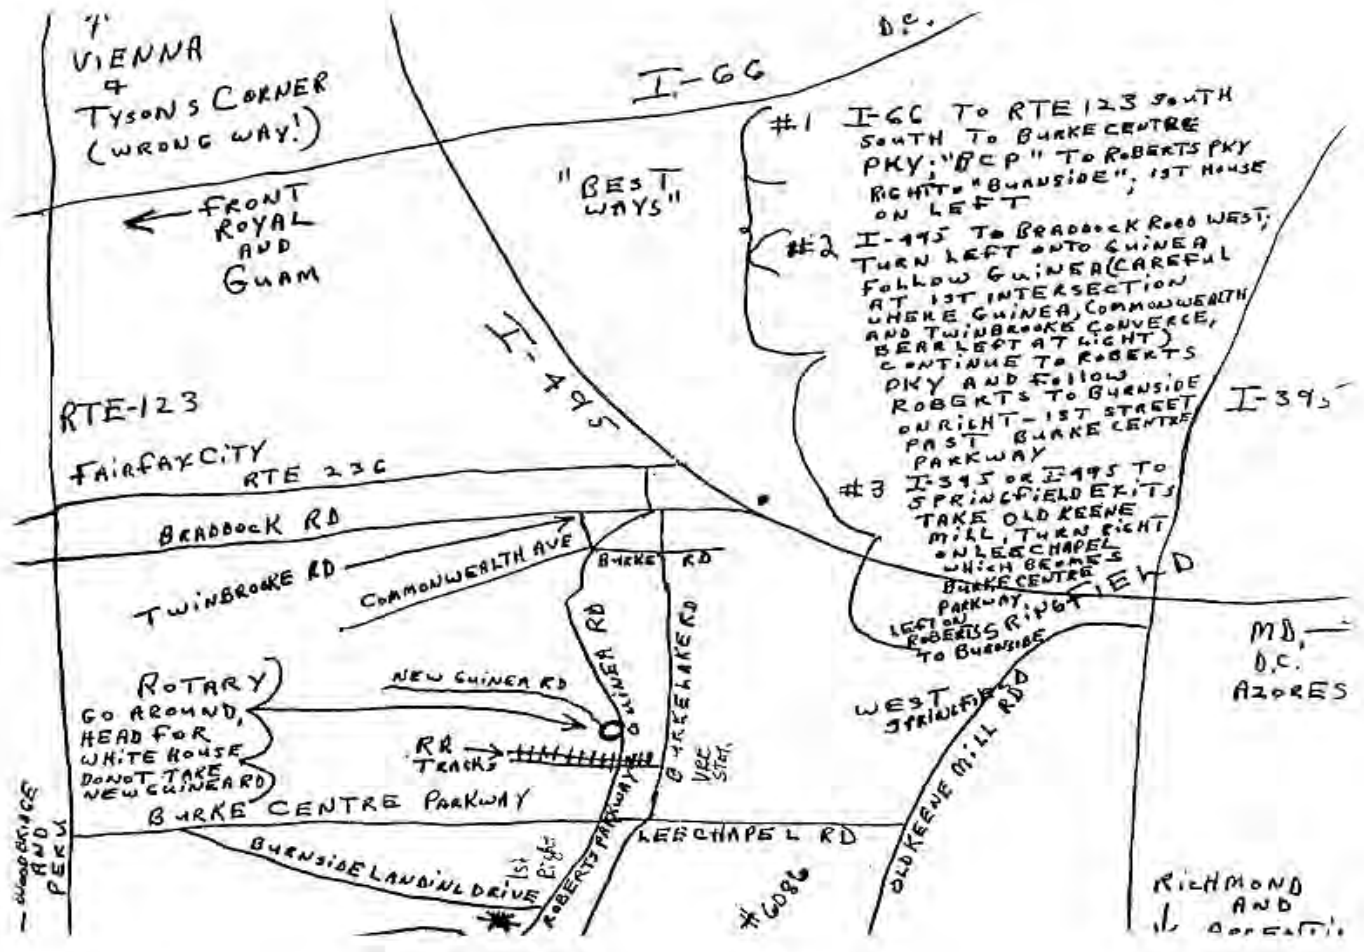 VIENNA
&
TYSONS CORNER
(WRONG WAY!)
D.C.
I-66
FRONT
ROYAL
AND
GUAM
"BEST
WAYS"
#1 I-66 TO RTE 123 SOUTH
SOUTH TO BURKE CENTRE
PKY; "BCP" TO ROBERTS PKY
RIGHT TO "BURNSIDE"; 1ST HOUSE
ON LEFT
#2 I-495 TO BRADDOCK ROAD WEST;
TURN LEFT ONTO GUINEA
FOLLOW GUINEA (CAREFUL
AT 1ST INTERSECTION
WHERE GUINEA, COMMONWEALTH
AND TWINBROOKE CONVERGE,
BEAR LEFT AT LIGHT)
CONTINUE TO ROBERTS
PKY AND FOLLOW
ROBERTS TO BURNSIDE
ON RIGHT - 1ST STREET
PAST BURKE CENTRE
PARKWAY
#3 I-395 OR I-495 TO
SPRINGFIELD EXITS
TAKE OLD KEENE
MILL, TURN RIGHT
ON LEE CHAPEL
WHICH BECOMES
BURKE CENTRE
PARKWAY,
LEFT ON
ROBERTS
TO BURNSIDE
SPRINGFIELD
I-495
I-395
RTE-123
FAIRFAX CITY
RTE 236
BRADDOCK RD
TWINBROOKE RD
COMMONWEALTH AVE
BURKE RD
GUINEA RD
BURKE LAKE RD
MD,
D.C.
AZORES
ROTARY
GO AROUND,
HEAD FOR
WHITE HOUSE
DO NOT TAKE
NEW GUINEA RD
NEW GUINEA RD
RR
TRACKS
VRE
STAT.
WEST
SPRINGFIELD
OLD KEENE MILL RD
BURKE CENTRE PARKWAY
LEE CHAPEL RD
BURNSIDE LANDING DRIVE
1st
Right
ROBERTS PARKWAY
#6086
WOODBRIDGE
AND
PERU
RICHMOND
AND